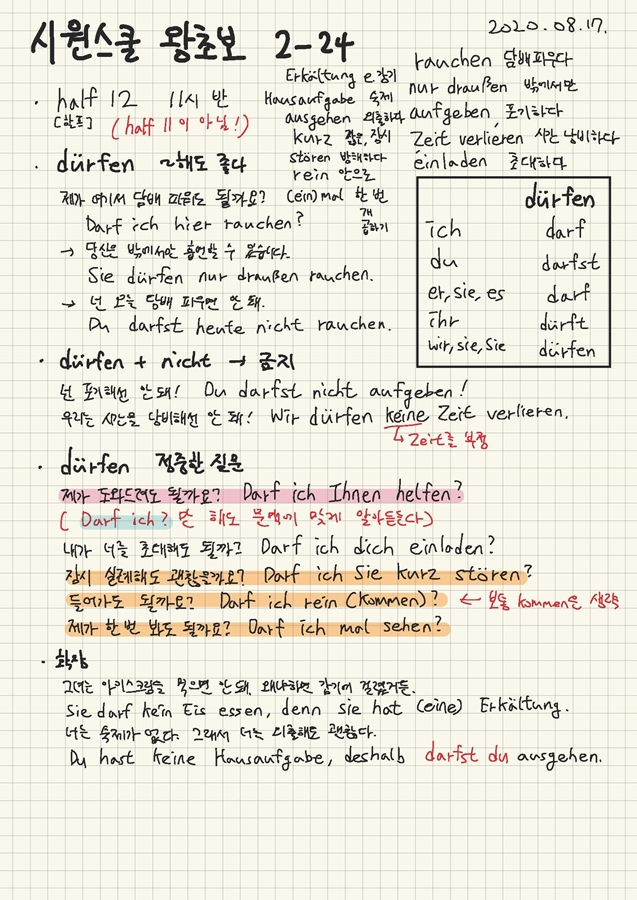 시원스쿨 왕초보 2-24
2020.08.17.
Erkältung e.감기
Hausaufgabe 숙제
ausgehen 외출하다
kurz 짧은, 잠시
stören 방해하다
rein 안으로
(ein)mal 한 번
rauchen 담배피우다
nur draußen 밖에서만
aufgeben 포기하다
Zeit verlieren 시간 낭비하다
einladen 초대하다
· half 12 11시 반
[할프] (half 11이 아님!)
· dürfen ~해도 좋다
제가 여기서 담배 피워도 될까요?
Darf ich hier rauchen?
→ 당신은 밖에서만 흡연할 수 있습니다.
Sie dürfen nur draußen rauchen.
→ 넌 오늘 담배 피우면 안 돼.
Du darfst heute nicht rauchen.
dürfen
ich darf
du darfst
er, sie, es darf
ihr dürft
wir, sie, Sie dürfen
· dürfen + nicht → 금지
넌 포기해선 안 돼! Du darfst nicht aufgeben!
우리는 시간을 낭비해선 안 돼! Wir dürfen keine Zeit verlieren.
↳ Zeit를 부정
· dürfen 정중한 질문
제가 도와드려도 될까요? Darf ich Ihnen helfen?
( Darf ich? 만 해도 문맥에 맞게 알아듣는다)
내가 너를 초대해도 될까? Darf ich dich einladen?
잠시 실례해도 괜찮을까요? Darf ich Sie kurz stören?
들어가도 될까요? Darf ich rein (kommen)? ← 보통 kommen은 생략
제가 한 번 봐도 될까요? Darf ich mal sehen?
· 확장
그녀는 아이스크림을 먹으면 안 돼, 왜냐하면 감기에 걸렸거든.
Sie darf kein Eis essen, denn sie hat (eine) Erkältung.
너는 숙제가 없다. 그래서 너는 외출해도 괜찮다.
Du hast keine Hausaufgabe, deshalb darfst du ausgehen.